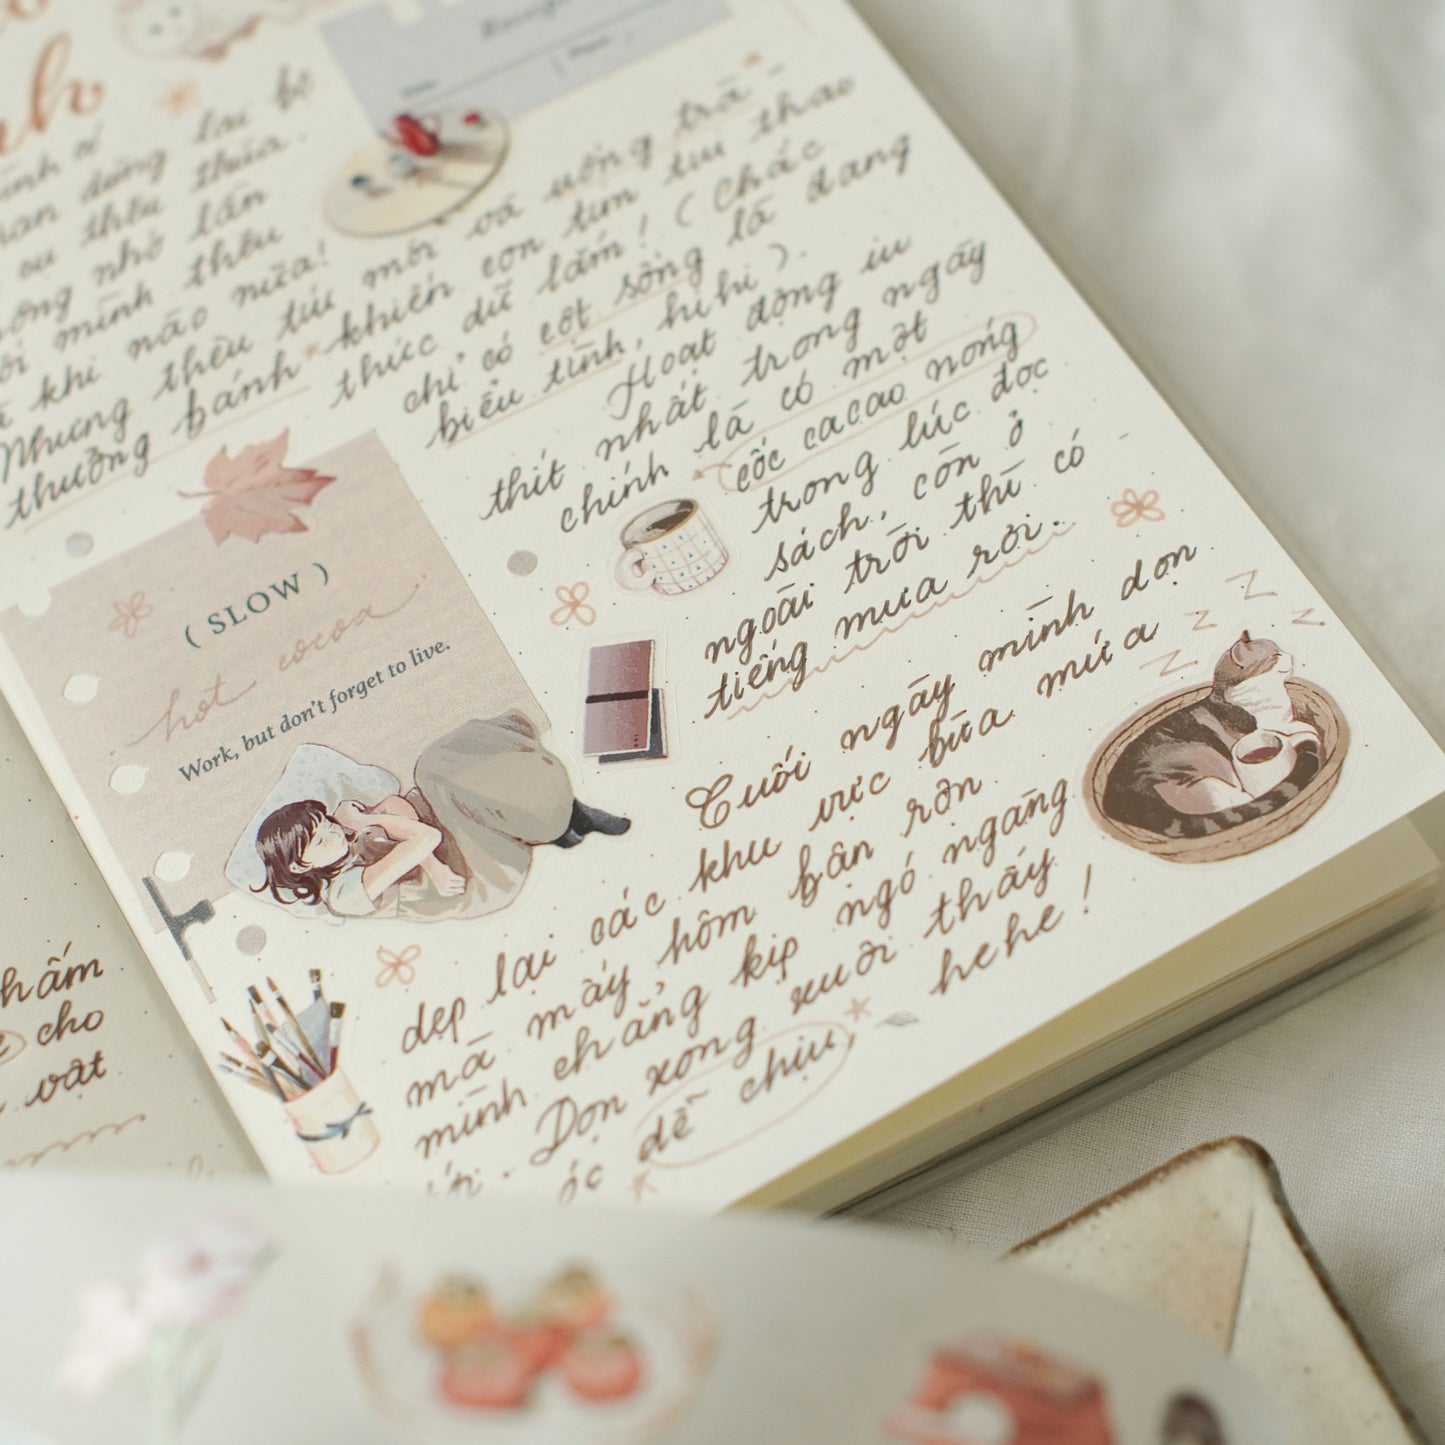 Receipt
nh
lại bộ
dừng
thêu thùa.
nhỏ lần
mình thêu
khi nào nữa!
Nhưng thêu túi mới và uống trà
thưởng bánh khiến con tim tui thao
thức dữ lắm! (Chắc
chỉ có cột sống là đang
biểu tình, hihi).
Hoạt động iu
thít nhất trong ngày
chính là có một
cốc cacao nóng
trong lúc đọc
sách, còn ở
ngoài trời thì có
tiếng mưa rơi.
(SLOW)
hot cocoa
Work, but don't forget to live.
Cuối ngày mình dọn
dẹp lại các khu vực bừa mứa
mà mấy hôm bận rộn
mình chẳng kịp ngó ngàng
tới. Dọn xong xuôi thấy
dễ chịu, hehe!
z z z z z
hấm
cho
vật